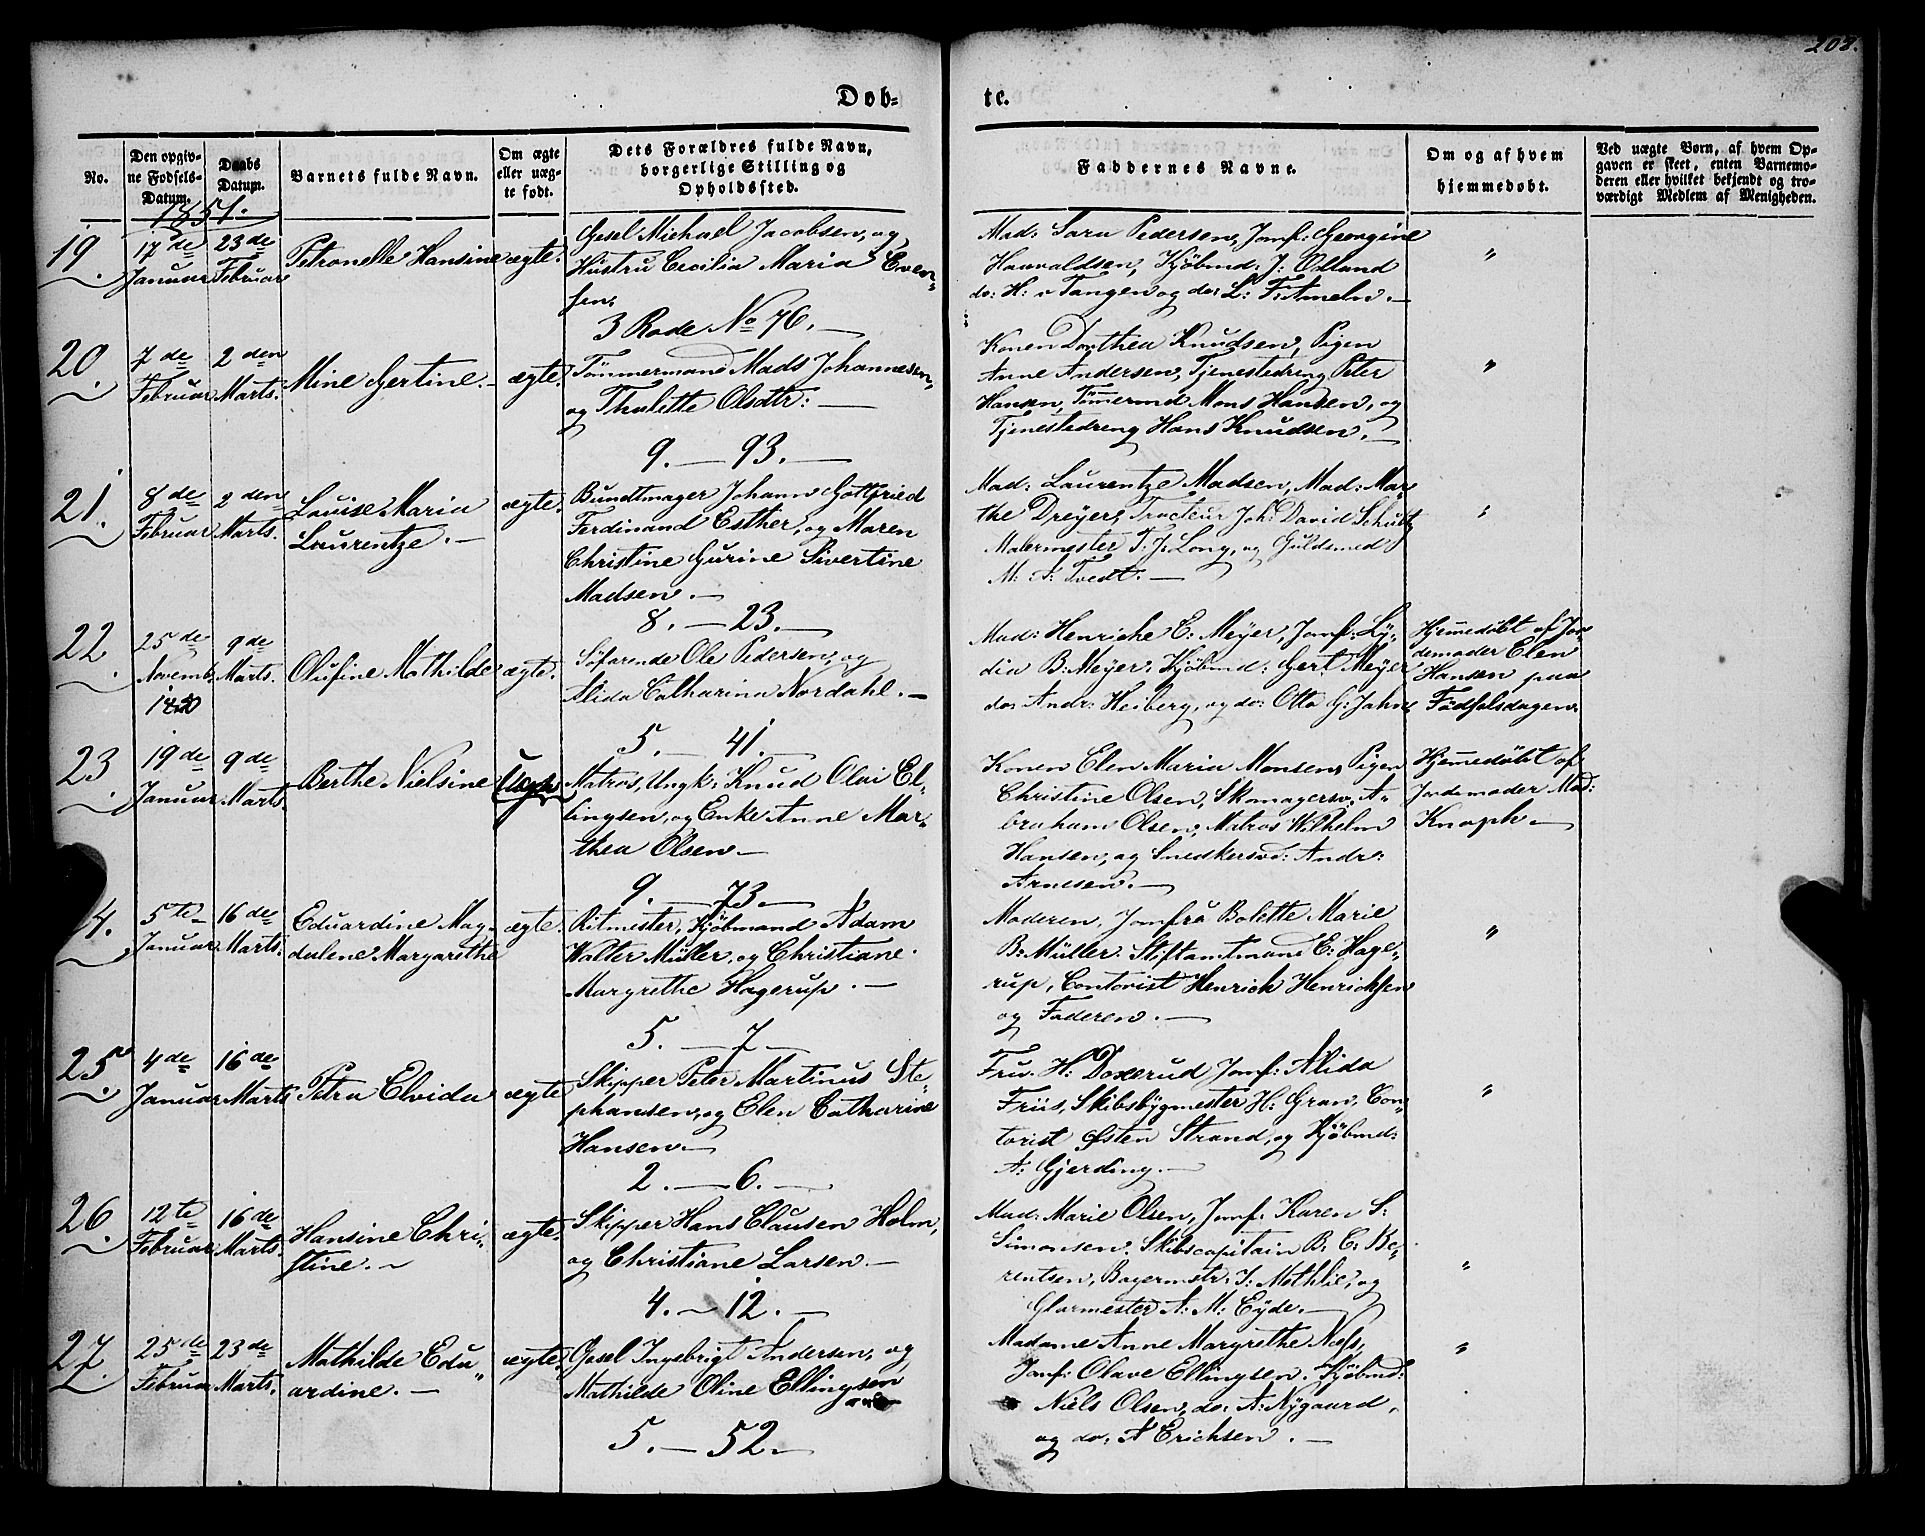 208.
Døb-
te.
No.
Den opgiv-
ne Fødsels-
Datum.
Daabs
Datum.
Barnets fulde Navn.
Om ægte
eller uæg-
te født.
Dets Forældres fulde Navn,
borgerlige Stilling og
Opholdssted.
Faddernes Navne.
Om og af hvem
hjemmedøbt.
Ved uægte Børn, af hvem Op-
gaven er skeet, enten Barnemo-
deren eller hvilket bekjendt og tro-
værdigt Medlem af Menigheden.
1851.
19.
17de
Januar
23de
Februar
Petronelle Hansine
ægte.
Gesel Michael Jacobsen, og
Hustru Cecilia Maria Even-
sen,
3 Rode No 76.
Mad: Sara Pedersen, Jomf: Georgine
Hauvaldsen, Kjøbmd: J: Odland
do: H: v Tangen og do: L: F: Ameln.
"
20.
7de
Februar
2den
Marts.
Mine Gertine.
ægte.
Tømmermand Mads Johannesen,
og Thalette Olsdtr:
9. — 93.
Konen Dorthea Knudsen, Pigen
Anne Andersen, Tjenestedreng Peter
Hansen, Tømermd Mons Hansen, og
Tjenestedreng Hans Knudsen.
"
21.
8de
Februar
2den
Marts.
Louise Maria
Laurentze.
ægte.
Bundtmager Johann Gottfried
Ferdinand Esther, og Maren
Christine Gurine Sivertine
Madsen.
8. — 23.
Mad: Laurentze Madsen, Mad: Mar-
the Dreyer, Tracteur Joh: David Schultz
Malermester T. J. Long, og Guldsmed
M: A: Tvedt.
"
22.
25de
Novemb.
1850
9de
Marts.
Olufine Mathilde
ægte.
Søfarende Ole Pedersen, og
Alida Catharina Nordahl.
5. — 41.
Mad: Henriche E: Meyer, Jomf: Ly-
dia B: Meyer. Kjøbmd: Gert Meyer
do: Andr: Heiberg, og do: Otto G: Jahn
Hjemedøbt af Jor
demoder Elen
Hansen paa
Fødselsdagen.
23
19de
Januar
9de
Marts.
Berthe Nielsine
Uægte
Matros, Ungk: Knud Olai El-
lingsen, og Enke Anne Mar-
thea Olsen
9. — 73.
Konen Elen Maria Monsen, Pigen
Christine Olsen, Skomagersv: A-
braham Olsen, Matros Wilhelm
Hansen, og Snedkersvd: Andr:
Arnesen.
Hjemedøbt af
Jordemoder Mad:
Knoph
4.
5te
Januar
16de
Marts.
Eduardine Mag-
dalene Margarethe
ægte.
Ritmester, Kjøbmand Adam
Walter Müller, og Christiane
Margrethe Hagerup.
5. — 7
Moderen, Jomfru Bolette Marie
B: Müller. Stiftamtmand E: Hage-
rup, Contorist Henrich Henrichsen
og Faderen.
"
25.
4de
Januar
16de
Marts
Petra Elvida
ægte
Skipper Peter Martinus Ste-
phansen, og Elen Catharine
Hansen.
2. — 6.
Fru. H: Doxerud Jomf: Alida
Friis, Skibsbygmester H: Gran, Con-
torist Østen Strand, og Kjøbmd:
A: Gjerding.
"
26.
12te
Februar
16de
Marts.
Hansine Chri-
stine.
ægte.
Skipper Hans Clausen Holm,
og Christiane Larsen.
4. — 12.
Mad: Marie Olsen, Jomf: Karen S:
Simonsen. Skibscapitain B: C: Be-
rentsen, Bagermstr: J: Mathie, og
Glarmester A: M: Eyde.
"
27.
25de
Februar
23de
Marts.
Mathilde Edu-
ardine.
ægte.
Gesel Ingebrigt Andersen, og
Mathilde Oline Ellingsen
5. — 52.
Madame Anne Margrethe Næss,
Jomf: Olave Ellingsen. Kjøbmd:
Niels Olsen, do: A: Nygaard,
og do: A Erichsen.
"